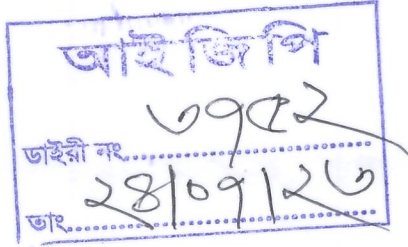 আই জি পি
ডাইরী নং..........৩৭৫২
তাং......২৪|০৭|২৩